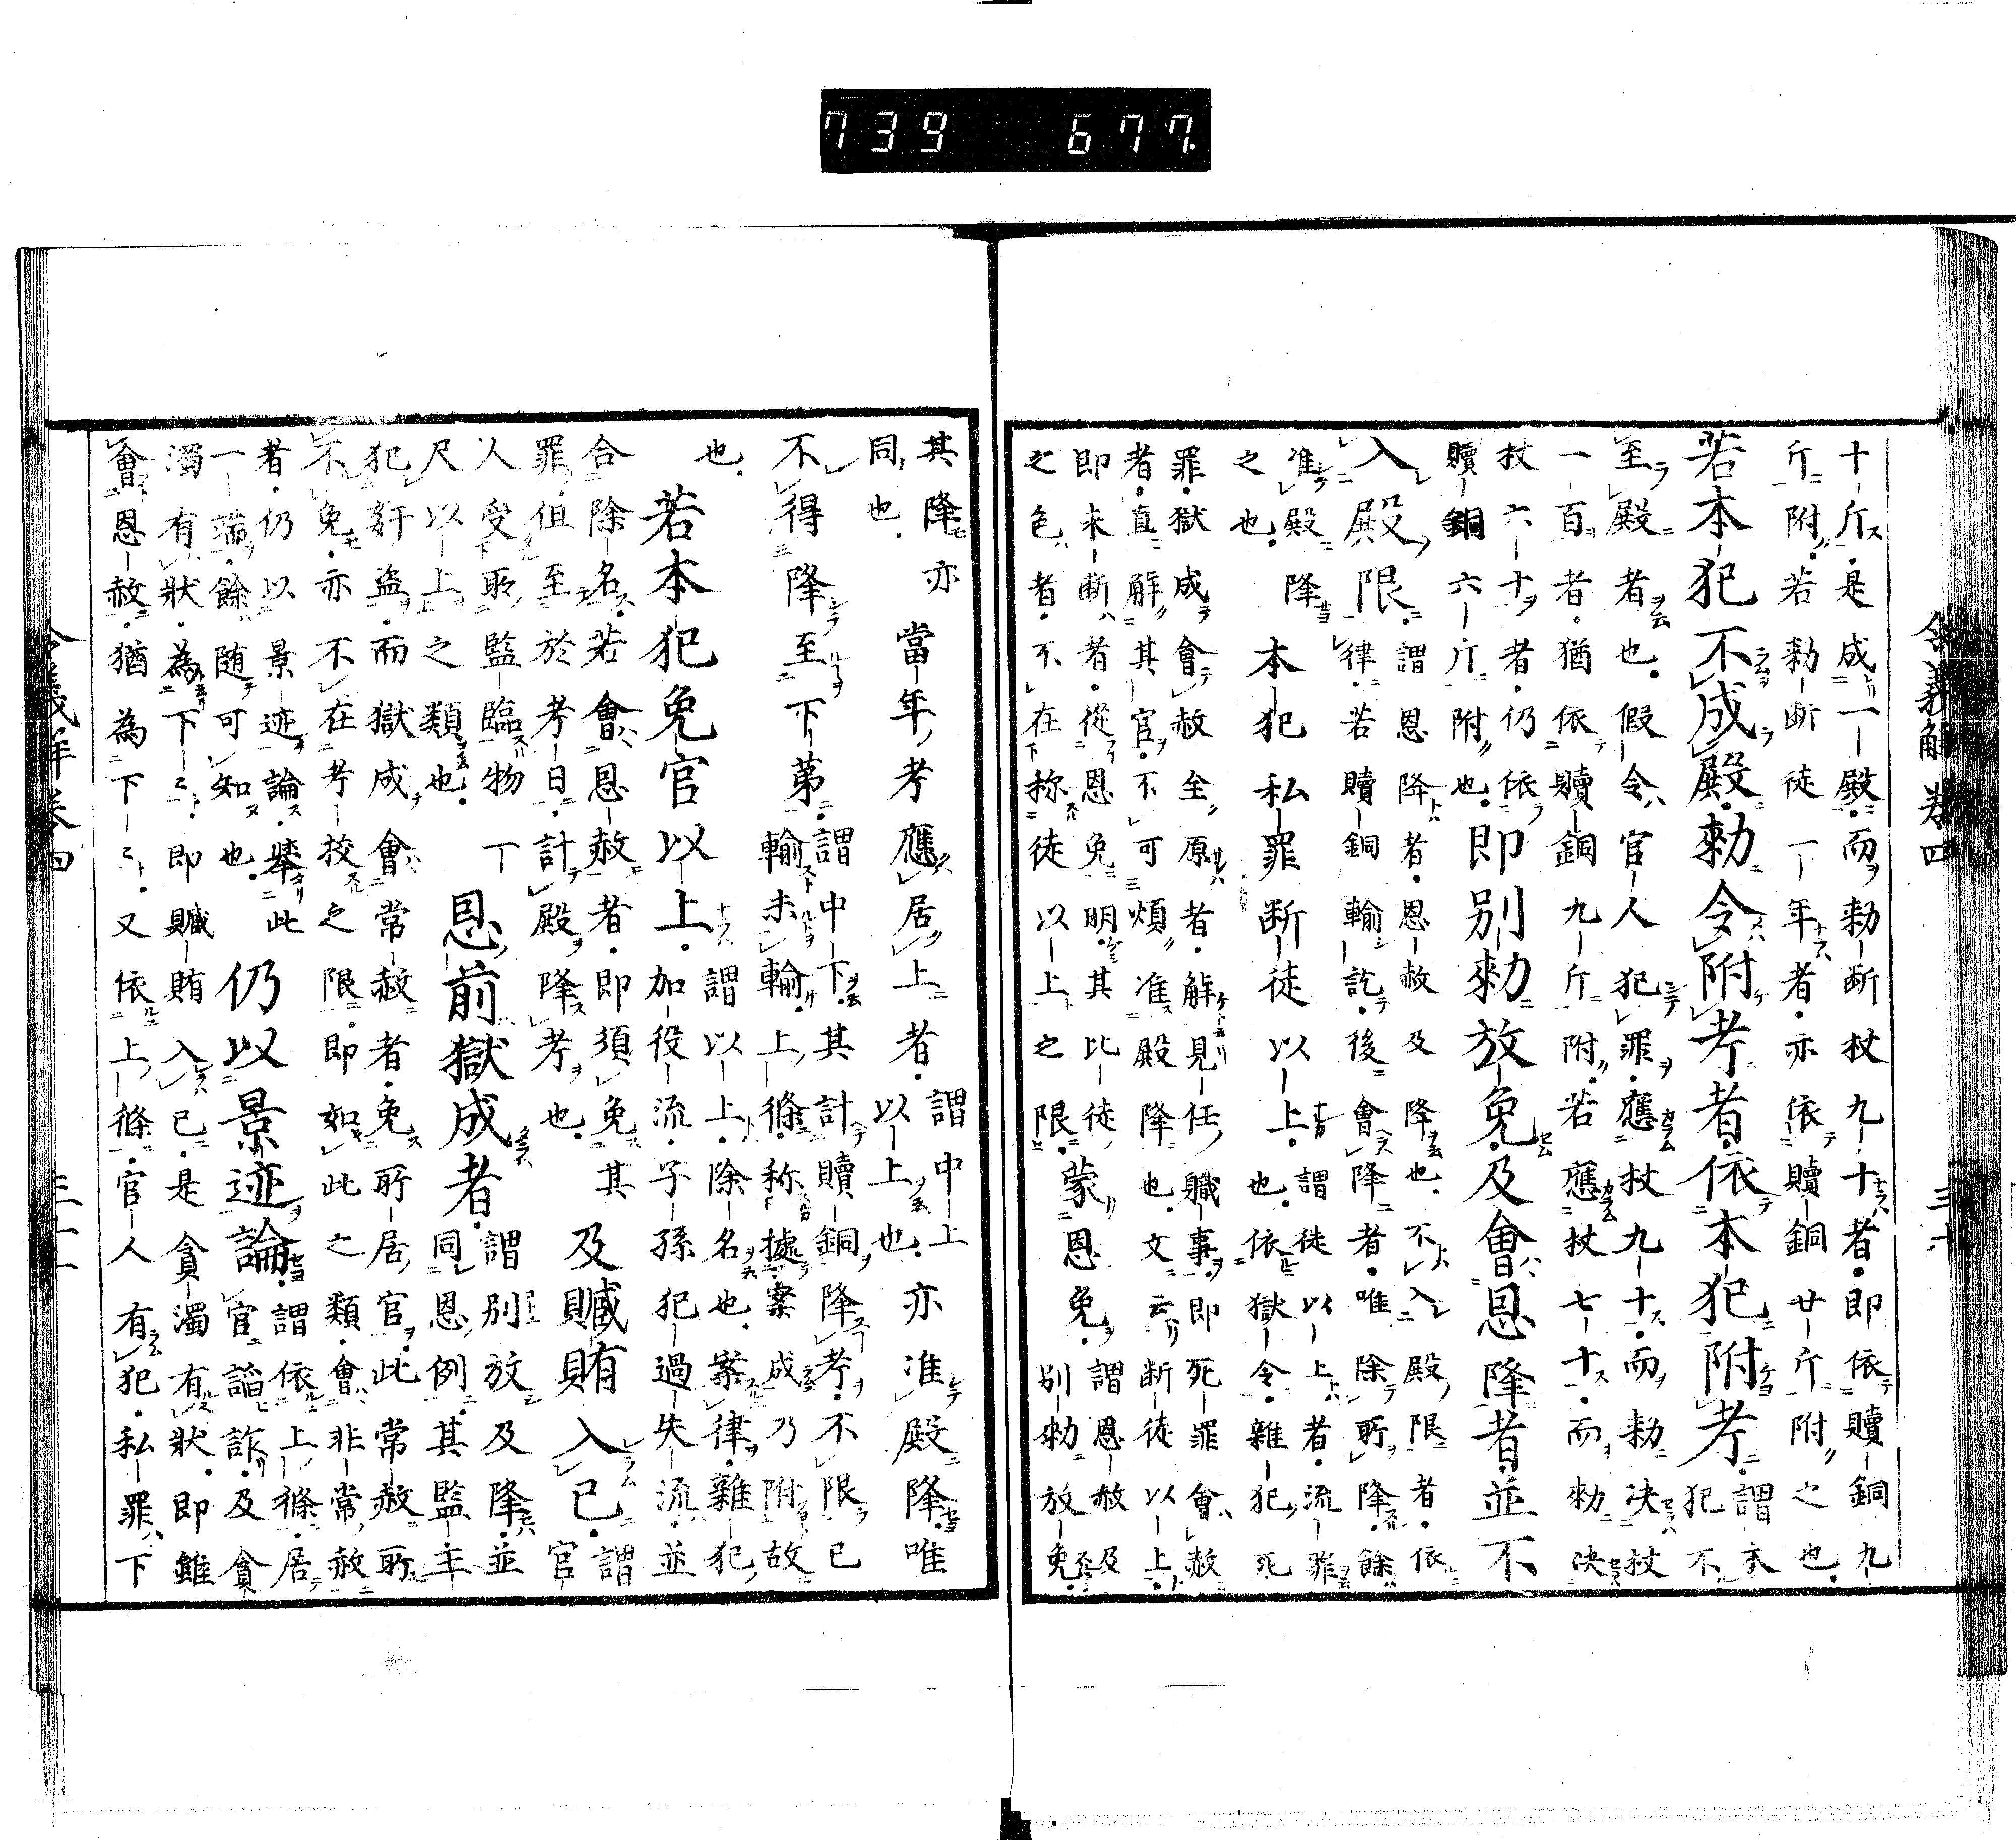 739 677.
令義解卷四 三十六
十斤是成一殿而勅断杖九十者即依贖銅九
斤附若勅断徒一年者亦依贖銅廿斤附之也
若本犯不成殿勅令附考者依本犯附考
謂本
犯不
至殿者也假令官人犯罪應杖九十而勅决杖
一百者猶依贖銅九斤附若應杖七十而勅决
杖六十者仍依
贖銅六斤附也
即別勅放免及會恩降者並不
入殿限
謂恩降者恩赦及降也不入殿限者依
律若贖銅輸訖後會降者唯除所降餘
准殿降
之也
本犯私罪断徒以上
謂徒以上者流罪
也依獄令雜犯死
罪獄成會赦全原者解見任職事即死罪會赦
者直解其官不可煩准殿降也文云断徒以上
即未断者從恩免明其比徒
之色者不在称徒以上之限
蒙恩免
謂恩赦及
別勅放免
其降亦
同也
當年考應居上者
謂中上
以上也
亦准殿降唯
不得降至下第
謂中下其計贖銅降考不限已
輸未輸上條称據案成乃附故
也
若本犯免官以上
謂以上除名也案律雜犯
加役流子孫犯過失流並
合除名若會恩赦者即須免其
罪但至於考日計殿降考也
及贓賄入己
謂
官
人受所監臨物一
尺以上之類也
恩前獄成者
謂別放及降並
同恩例其監主
犯姧盗而獄成會常赦者免所居官此常赦所
不免亦不在考挍之限即如此之類會非常赦
者仍以景迹論舉此
一端餘随可知也
仍以景迹論
謂依上條居
官諂詐及貪
濁有狀為下〻即贓賄入己是貪濁有狀即雖
會恩赦猶為下〻又依上條官人有犯私罪下